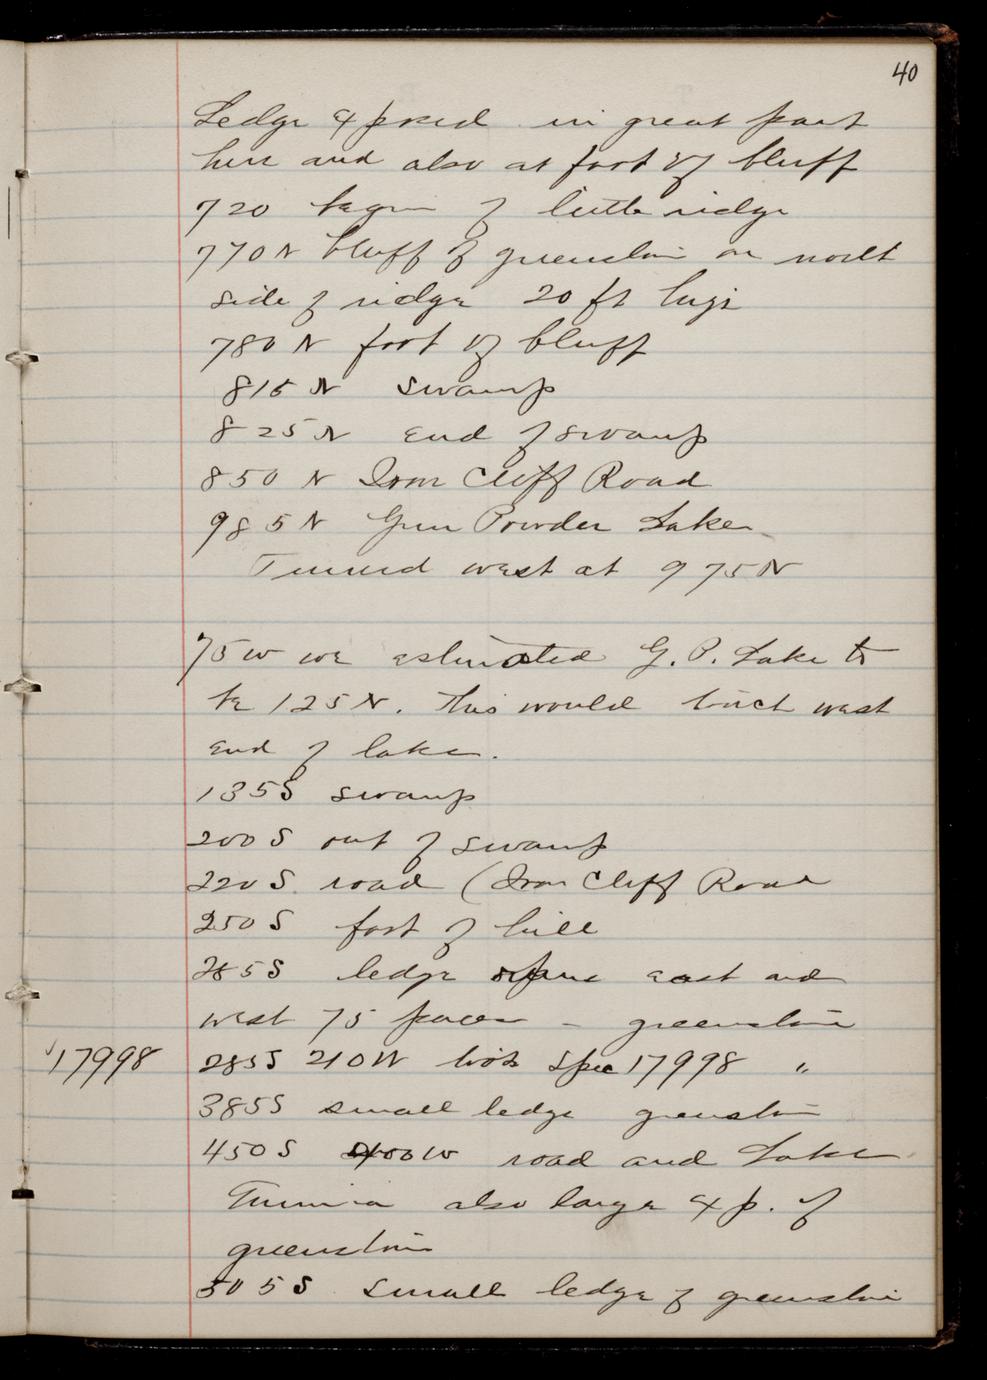 40
Ledge exposed in great part
here and also at foot of bluff
720 begin of little ridge
770 N bluff of greenstone on north
side of ridge 20 ft high
780 N foot of bluff
815 N swamp
825 N end of swamp
850 N Iron Cliff Road
985 N Gun Powder Lake
Turned west at 975 N
75 W we estimated G. P. Lake to
be 125 N. This would touch west
end of lake.
135 S swamp
200 S out of swamp
220 S road (Iron Cliff Road
250 S foot of hill
285 S ledge east and
west 75 paces - greenstone
17998 285 S 210 W took Spec 17998 "
385 S small ledge greenstone
450 S 400 W road and Lake
also large exp. of
greenstone
505 S small ledge of greenstone